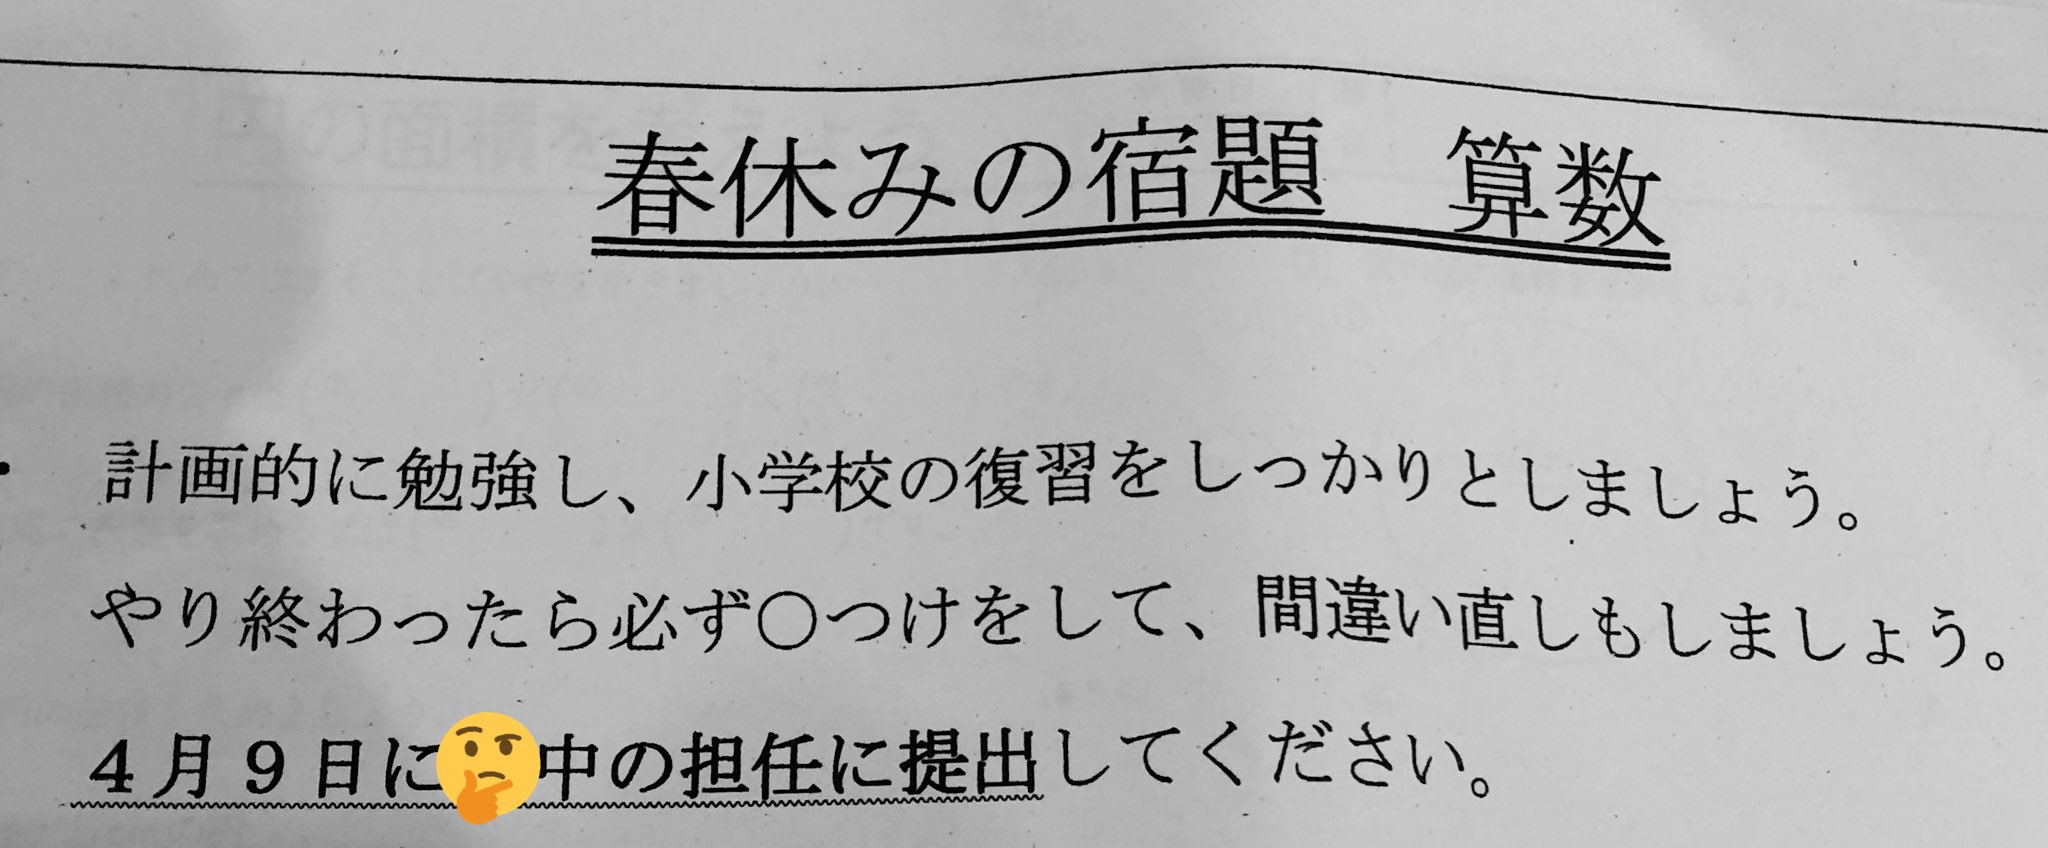 春休みの宿題　算数
・　計画的に勉強し、小学校の復習をしっかりとしましょう。
やり終わったら必ず〇つけをして、間違い直しもしましょう。
４月９日に🤔中の担任に提出してください。